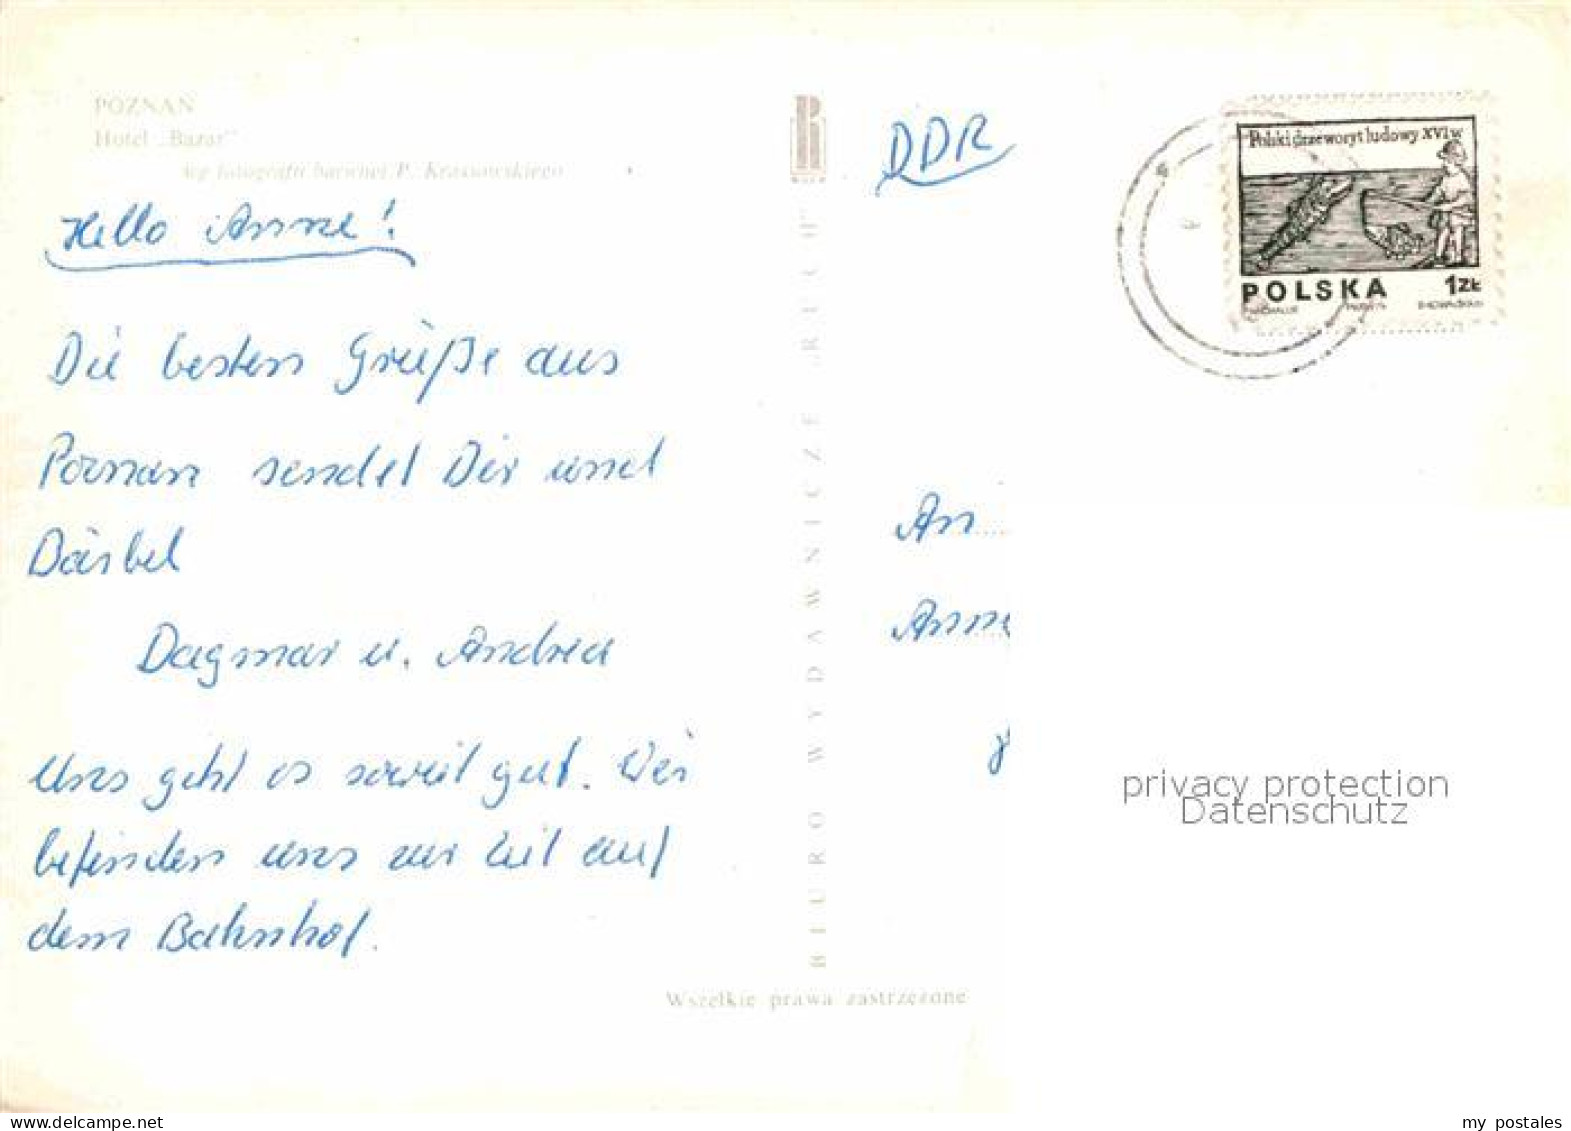 POZNAŃ
Hotel „Bazar"
wg fotografii barwnej P. Krassowskiego
Hello Anne!
Die besten Grüße aus
Poznan sendet Dir und
Bärbel
Dagmar u. Andrea
Uns geht es soweit gut. Wir
befinden uns zur Zeit auf
dem Bahnhof.
BIURO WYDAWNICZE „RUCH"
Wszelkie prawa zastrzeżone
DDR
Polski drzeworyt ludowy XVI w
POLSKA 1ZŁ
An
Anne
privacy protection
Datenschutz
my postales